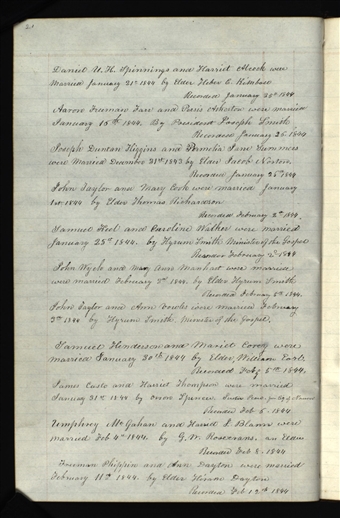 Daniel U. H. Spinnings and Harriet Alcock were
Married January 21st 1844 by Elder Heber C. Kimball
Recorded January 24th 1844
Aaron Freeman Farr and Persis Atherton were married
January 15th 1844. By President Joseph Smith
Recorded January 26 1844
Joseph Dunton Higgins and Permelia Jane
were Married December 31st 1843 by Elder Jacob Norton
Recorded January 26th 1844
John Taylor and Mary Cook were married January
1st 1844 by Elder Thomas Richardson
Recorded February 2nd 1844
Samuel and Caroline were married
January 25th 1844. by Hyrum Smith Minister of the Gospel
Recorded February 2d 1844
John Wych and Mary Ann were married
were married February 2nd 1844. by Elder Hyrum Smith
Recorded February 5th 1844.
John Taylor and Ann Vowles were married February
2nd 1844 by Hyrum Smith. Minister of the Gospel.
Samuel Henderson and were
married January 30th 1844 by Elder William
Recorded Feby 5th 1844.
James and Harriet Thompson were married
January 31st 1844 by Orson Spencer.
Recorded Feb 5. 1844
Umphrey McGahan and Harriet L. were
married Feb 4th 1844. by G. W. Rosecrans. an Elder
Recorded Feb 8. 1844
Freeman Phippin and Ann Dayton were married
February 11th 1844. by Elder Hiram Dayton
Recorded Feb 12th 1844